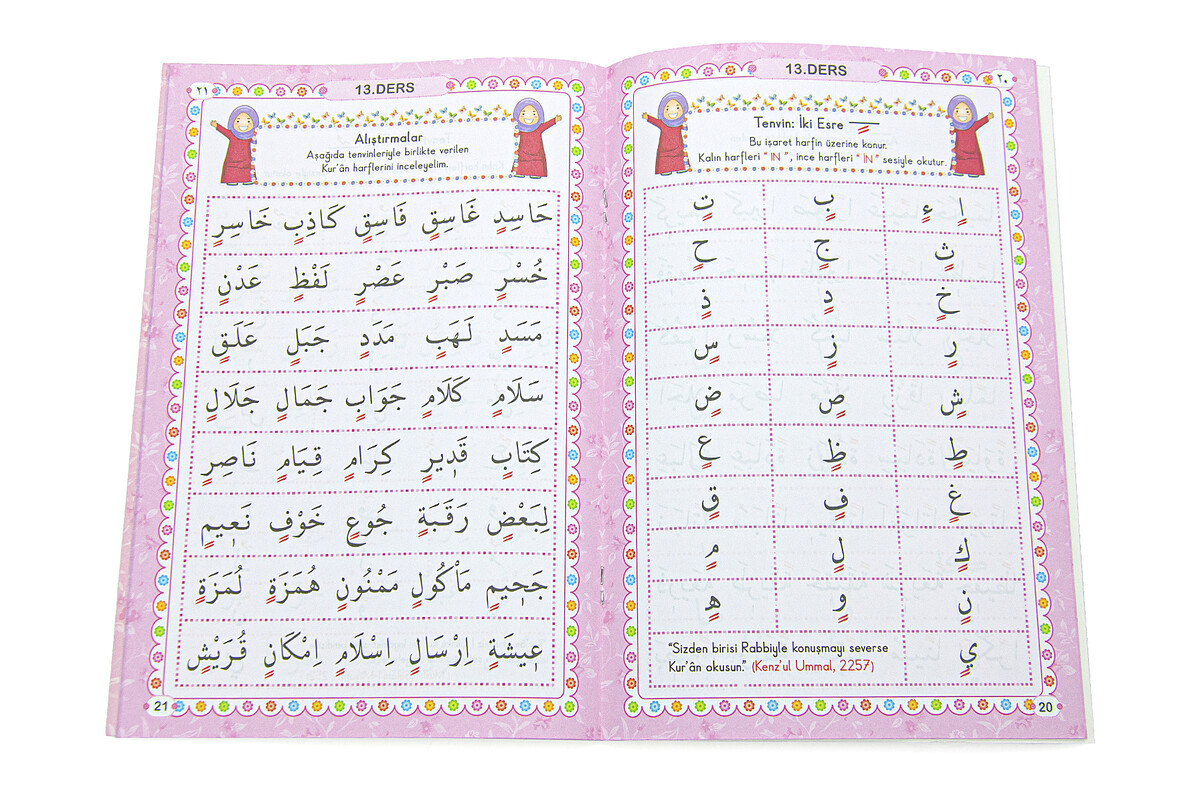 13.DERS
٢٠
Tenvin: İki Esre
Bu işaret harfin üzerine konur.
Kalın harfleri “ IN ” , ince harfleri “ İN ” sesiyle okutur.
اٍ ءٍ بٍ تٍ
ثٍ جٍ حٍ
خٍ دٍ ذٍ
رٍ زٍ سٍ
شٍ صٍ ضٍ
طٍ ظٍ عٍ
غٍ فٍ قٍ
كٍ لٍ مٍ
نٍ وٍ هٍ
يٍ
“Sizden birisi Rabbiyle konuşmayı severse
Kur’ân okusun.” (Kenz’ul Ummal, 2257)
20
٢١
13.DERS
Alıştırmalar
Aşağıda tenvinleriyle birlikte verilen
Kur’ân harflerini inceleyelim.
حَاسِدٍ غَاسِقٍ فَاسِقٍ كَاذِبٍ خَاسِرٍ
خُسْرٍ صَبْرٍ عَصْرٍ لَفْظٍ عَدْنٍ
مَسَدٍ لَهَبٍ مَدَدٍ جَبَلٍ عَلَقٍ
سَلَامٍ كَلَامٍ جَوَابٍ جَمَالٍ جَلَالٍ
كِتَابٍ قَدٖيرٍ كِرَامٍ قِيَامٍ نَاصِرٍ
لِبَعْضٍ رَقَبَةٍ جُوعٍ خَوْفٍ نَعٖيمٍ
جَحٖيمٍ مَاْكُولٍ مَمْنُونٍ هُمَزَةٍ لُمَزَةٍ
عٖيشَةٍ اِرْسَالٍ اِسْلَامٍ اِمْكَانٍ قُرَيْشٍ
21